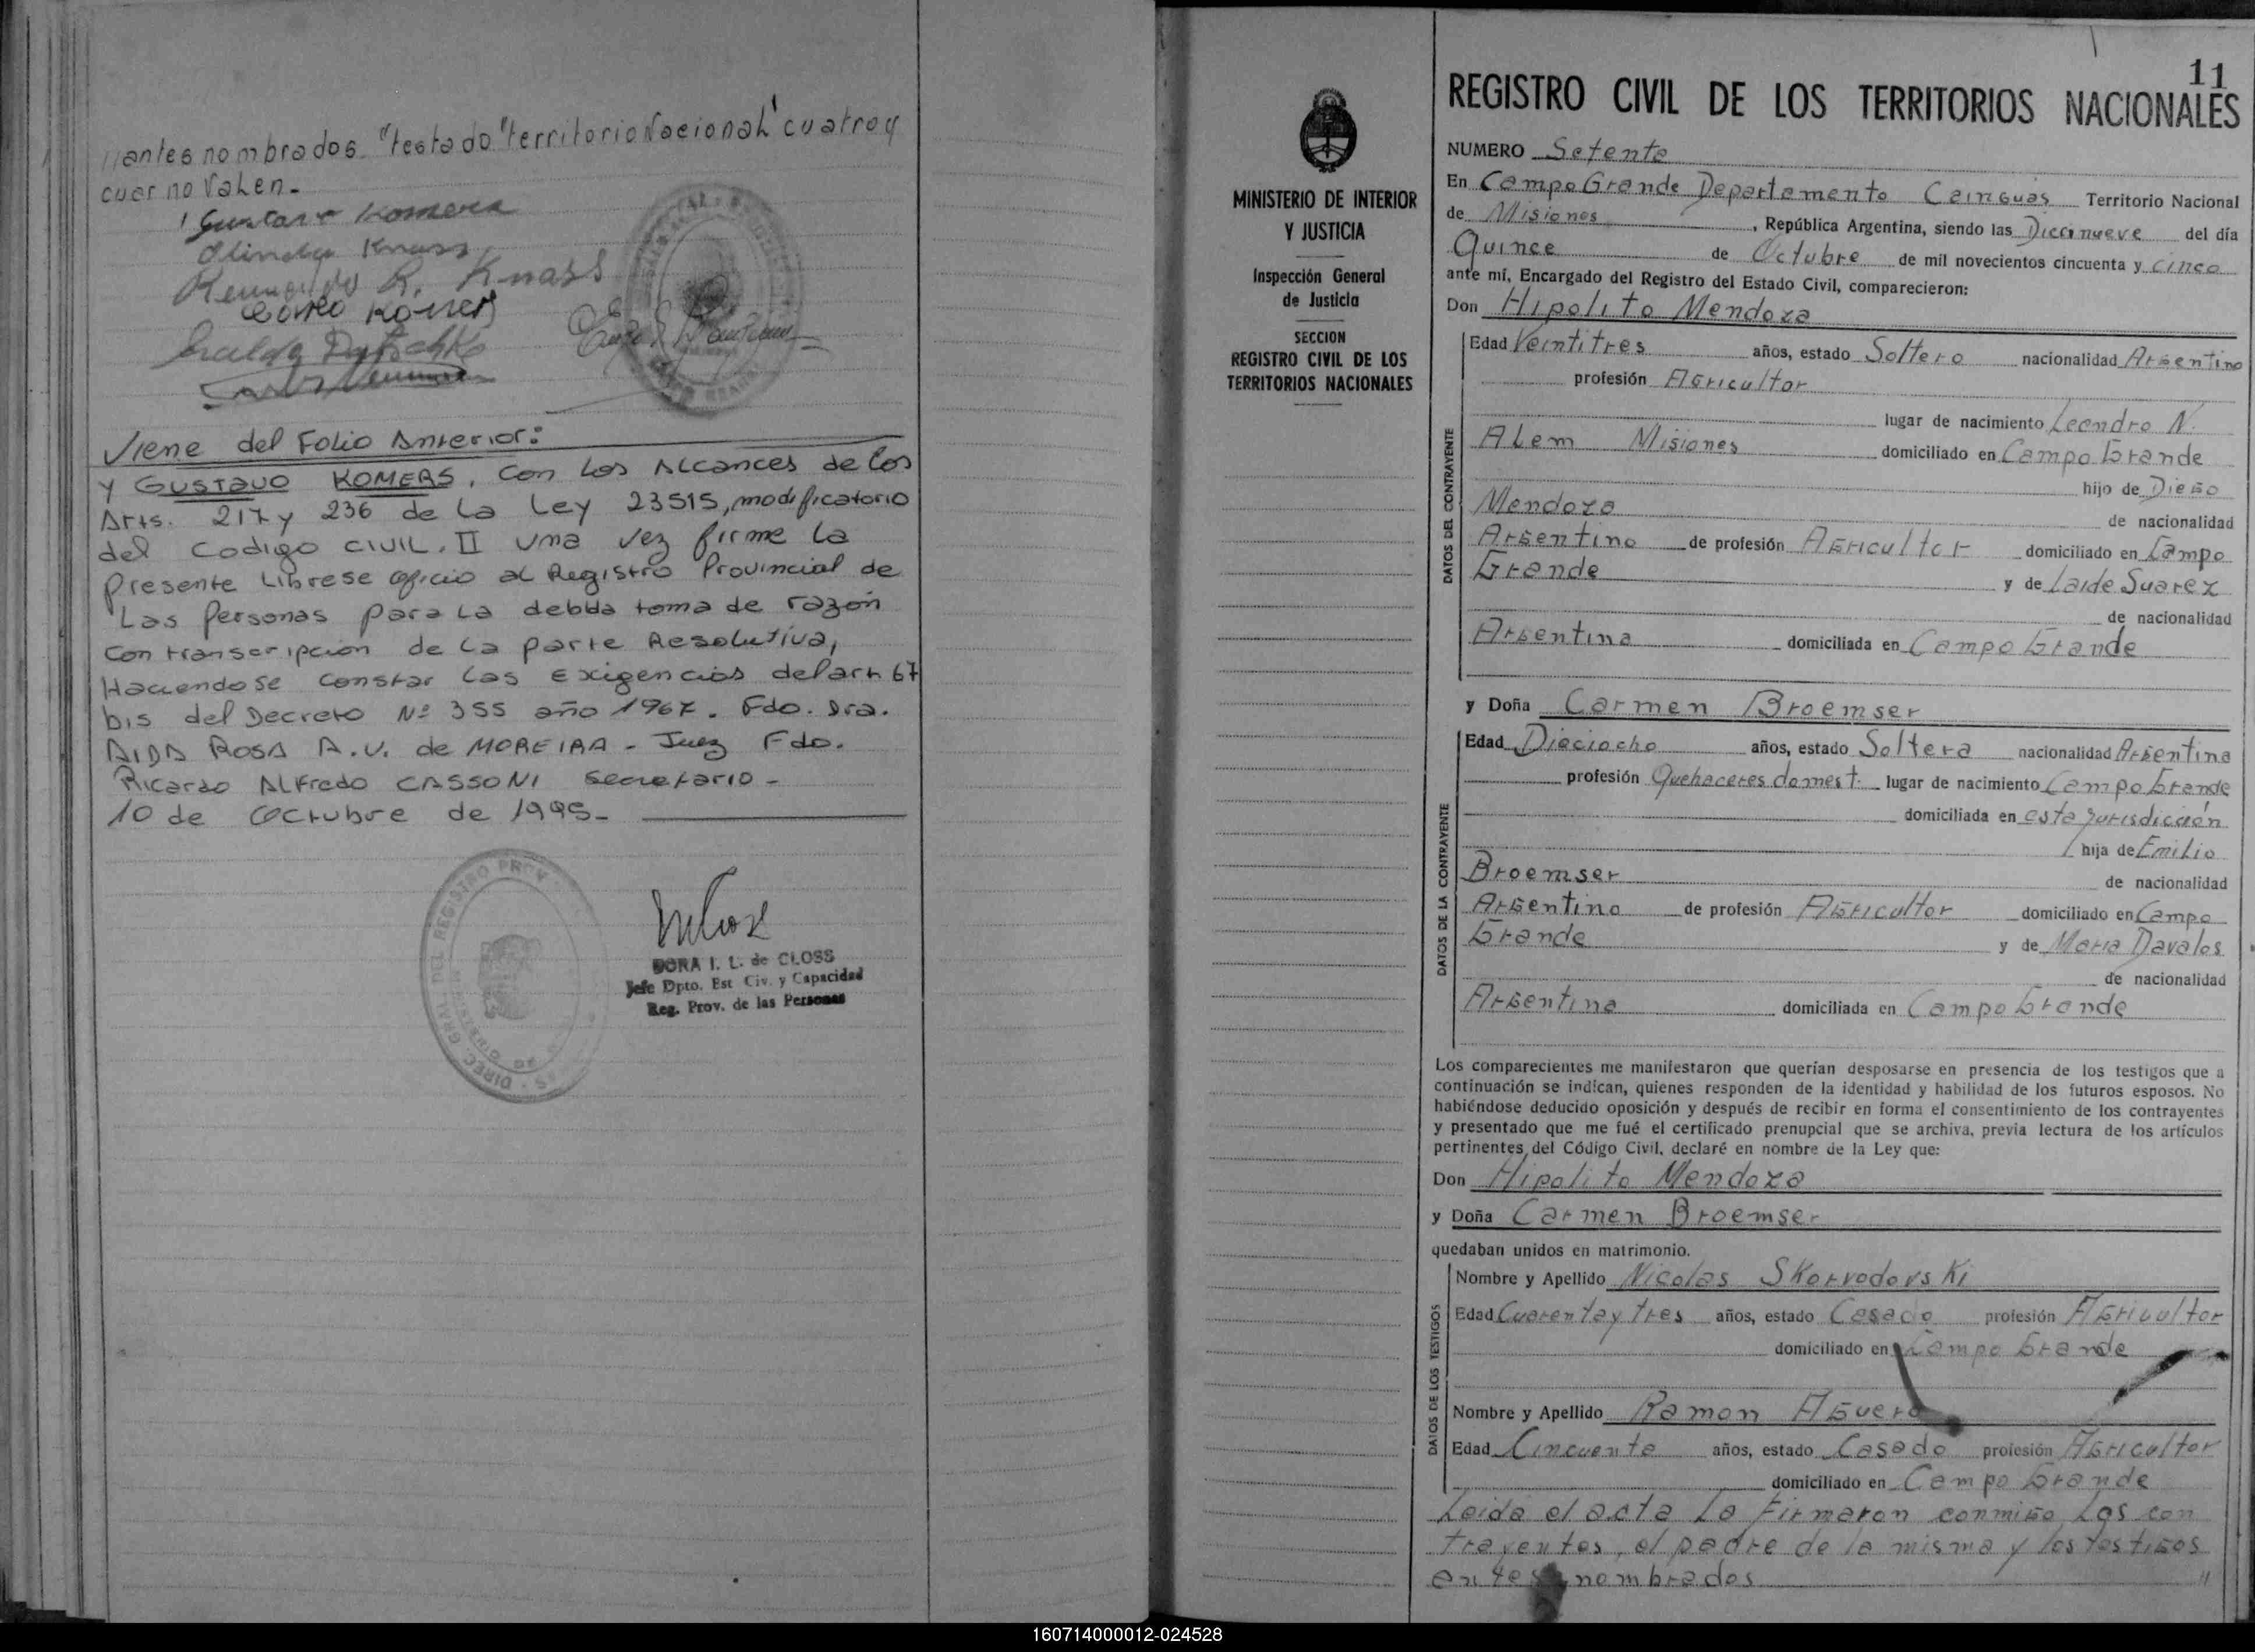 antes nombrados. "testado "territorio Nacional" cuatro y
cuar no valen.-
Gustavo Komers
Olinda Knass
R. Knass
Viene del Folio Anterior:
y GUSTAVO KOMERS, con los Alcances de los
Arts. 217 y 236 de la Ley 23515, modificatorio
del Codigo CIVIL. II Una vez firme la
Presente Librese oficio al Registro Provincial de
Las Personas para la debida toma de razón
con transcripción de la parte Resolutiva,
Haciendose constar las Exigencias del art 67
bis del Decreto Nº 355 año 1967. Fdo. Dra.
AIDA ROSA A.V. de MOREIRA - Juez Fdo.
Ricardo Alfredo CASSONI Secretario -
10 de Octubre de 1995.-
DORA I. L. de CLOSS
Jefe Dpto. Est Civ. y Capacidad
Reg. Prov. de las Personas
MINISTERIO DE INTERIOR
Y JUSTICIA
Inspección General
de Justicia
SECCION
REGISTRO CIVIL DE LOS
TERRITORIOS NACIONALES
11
REGISTRO CIVIL DE LOS TERRITORIOS NACIONALES
NUMERO Setenta
En Campo Grande Departamento Cainguas Territorio Nacional
de Misiones, República Argentina, siendo las Diecinueve del día
Quince de Octubre de mil novecientos cincuenta y cinco
ante mí, Encargado del Registro del Estado Civil, comparecieron:
Don Hipolito Mendoza
DATOS DEL CONTRAYENTE
Edad Veintitres años, estado Soltero nacionalidad Argentino
profesión Agricultor
lugar de nacimiento Leandro N.
Alem Misiones domiciliado en Campo Grande
hijo de Diego
Mendoza de nacionalidad
Argentino de profesión Agricultor domiciliado en Campo
Grande y de Laide Suarez
de nacionalidad
Argentina domiciliada en Campo Grande
y Doña Carmen Broemser
DATOS DE LA CONTRAYENTE
Edad Dieciocho años, estado Soltera nacionalidad Argentina
profesión Quehaceres domest. lugar de nacimiento Campo Grande
domiciliada en esta jurisdicción
hija de Emilio
Broemser de nacionalidad
Argentino de profesión Agricultor domiciliado en Campo
Grande y de Maria Davalos
de nacionalidad
Argentina domiciliada en Campo Grande
Los comparecientes me manifestaron que querían desposarse en presencia de los testigos que a
continuación se indican, quienes responden de la identidad y habilidad de los futuros esposos. No
habiéndose deducido oposición y después de recibir en forma el consentimiento de los contrayentes
y presentado que me fué el certificado prenupcial que se archiva, previa lectura de los artículos
pertinentes del Código Civil, declaré en nombre de la Ley que:
Don Hipolito Mendoza
y Doña Carmen Broemser
quedaban unidos en matrimonio.
DATOS DE LOS TESTIGOS
Nombre y Apellido Nicolas Skorvodovski
Edad Cuarenta y tres años, estado Casado profesión Agricultor
domiciliado en Campo Grande
Nombre y Apellido Ramon Aguero
Edad Cincuenta años, estado Casado profesión Agricultor
domiciliado en Campo Grande
Leida el acta la firmaron conmigo los con
trayentes, el padre de la misma y los testigos
antes nombrados "
160714000012-024528